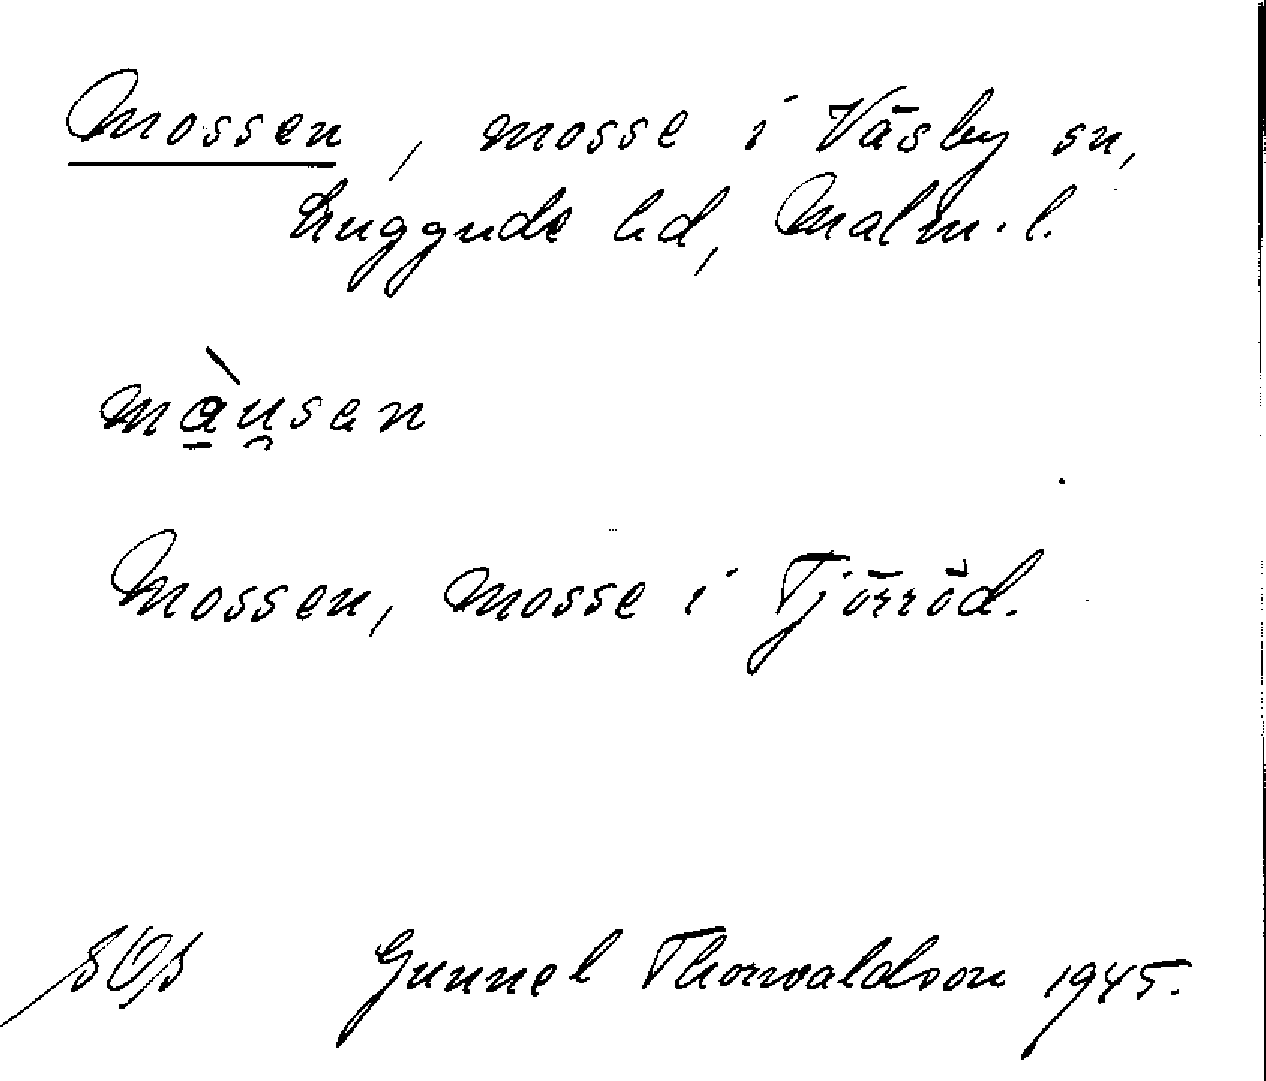 Mossen, mosse i Väsby sn,
Luggude hd, Malm. l.
màu̯sen
Mossen, mosse i Tjörröd.
Gunnel Thorwaldson 1945.